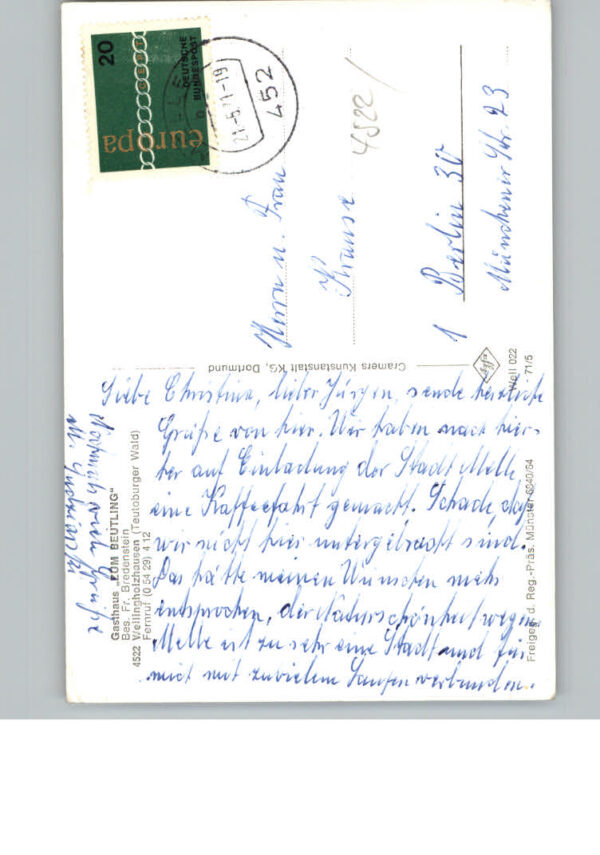 20
DEUTSCHE
BUNDESPOST
europa
21-5.71-19
452
4522/
Herrn u. Frau
Krause
1 Berlin 30
Münchener Str. 23
Cramers Kunstanstalt KG, Dortmund
Well 022
71/5
Freigeg. d. Reg.-Präs. Münster 6240/64
Gasthaus „ZUM BEUTLING“
Bes. Fr. Bredenstein
4522 Wellingholzhausen (Teutoburger Wald)
Fernruf (0 54 29) 4 12
Liebe Christina, lieber Jürgen, sende herzliche
Grüße von hier. Wir haben nach hier-
her auf Einladung der Stadt Melle,
eine Kaffeefahrt gemacht. Schade, daß
wir nicht hier untergebracht sind.
Das hätte meinen Wünschen mehr
entsprochen, der Naturschönheit wegen.
Melle ist zu sehr eine Stadt und für
mich mit zuvielem Laufen verbunden.
Nochmals viele Grüße